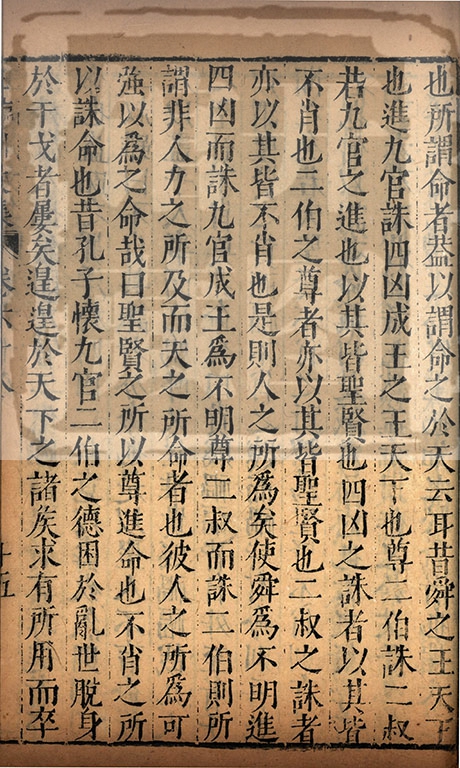 也所謂命者蓋以謂命之於天云耳昔舜之王天下
也進九官誅四凶成王之王天下也尊二伯誅二叔
若九官之進也以其皆聖賢也四凶之誅者以其皆
不肖也二伯之尊者亦以其皆聖賢也二叔之誅者
亦以其皆不肖也是則人之所為矣使舜為不明進
四凶而誅九官成王為不明尊二叔而誅二伯則所
謂非人力之所及而天之所命者也彼人之所為可
強以為之命哉曰聖賢之所以尊進命也不肖之所
以誅命也昔孔子懷九官二伯之德困於亂世脫身
於干戈者屢矣遑遑於天下之諸矦求有所用而卒
卷六十八
十五